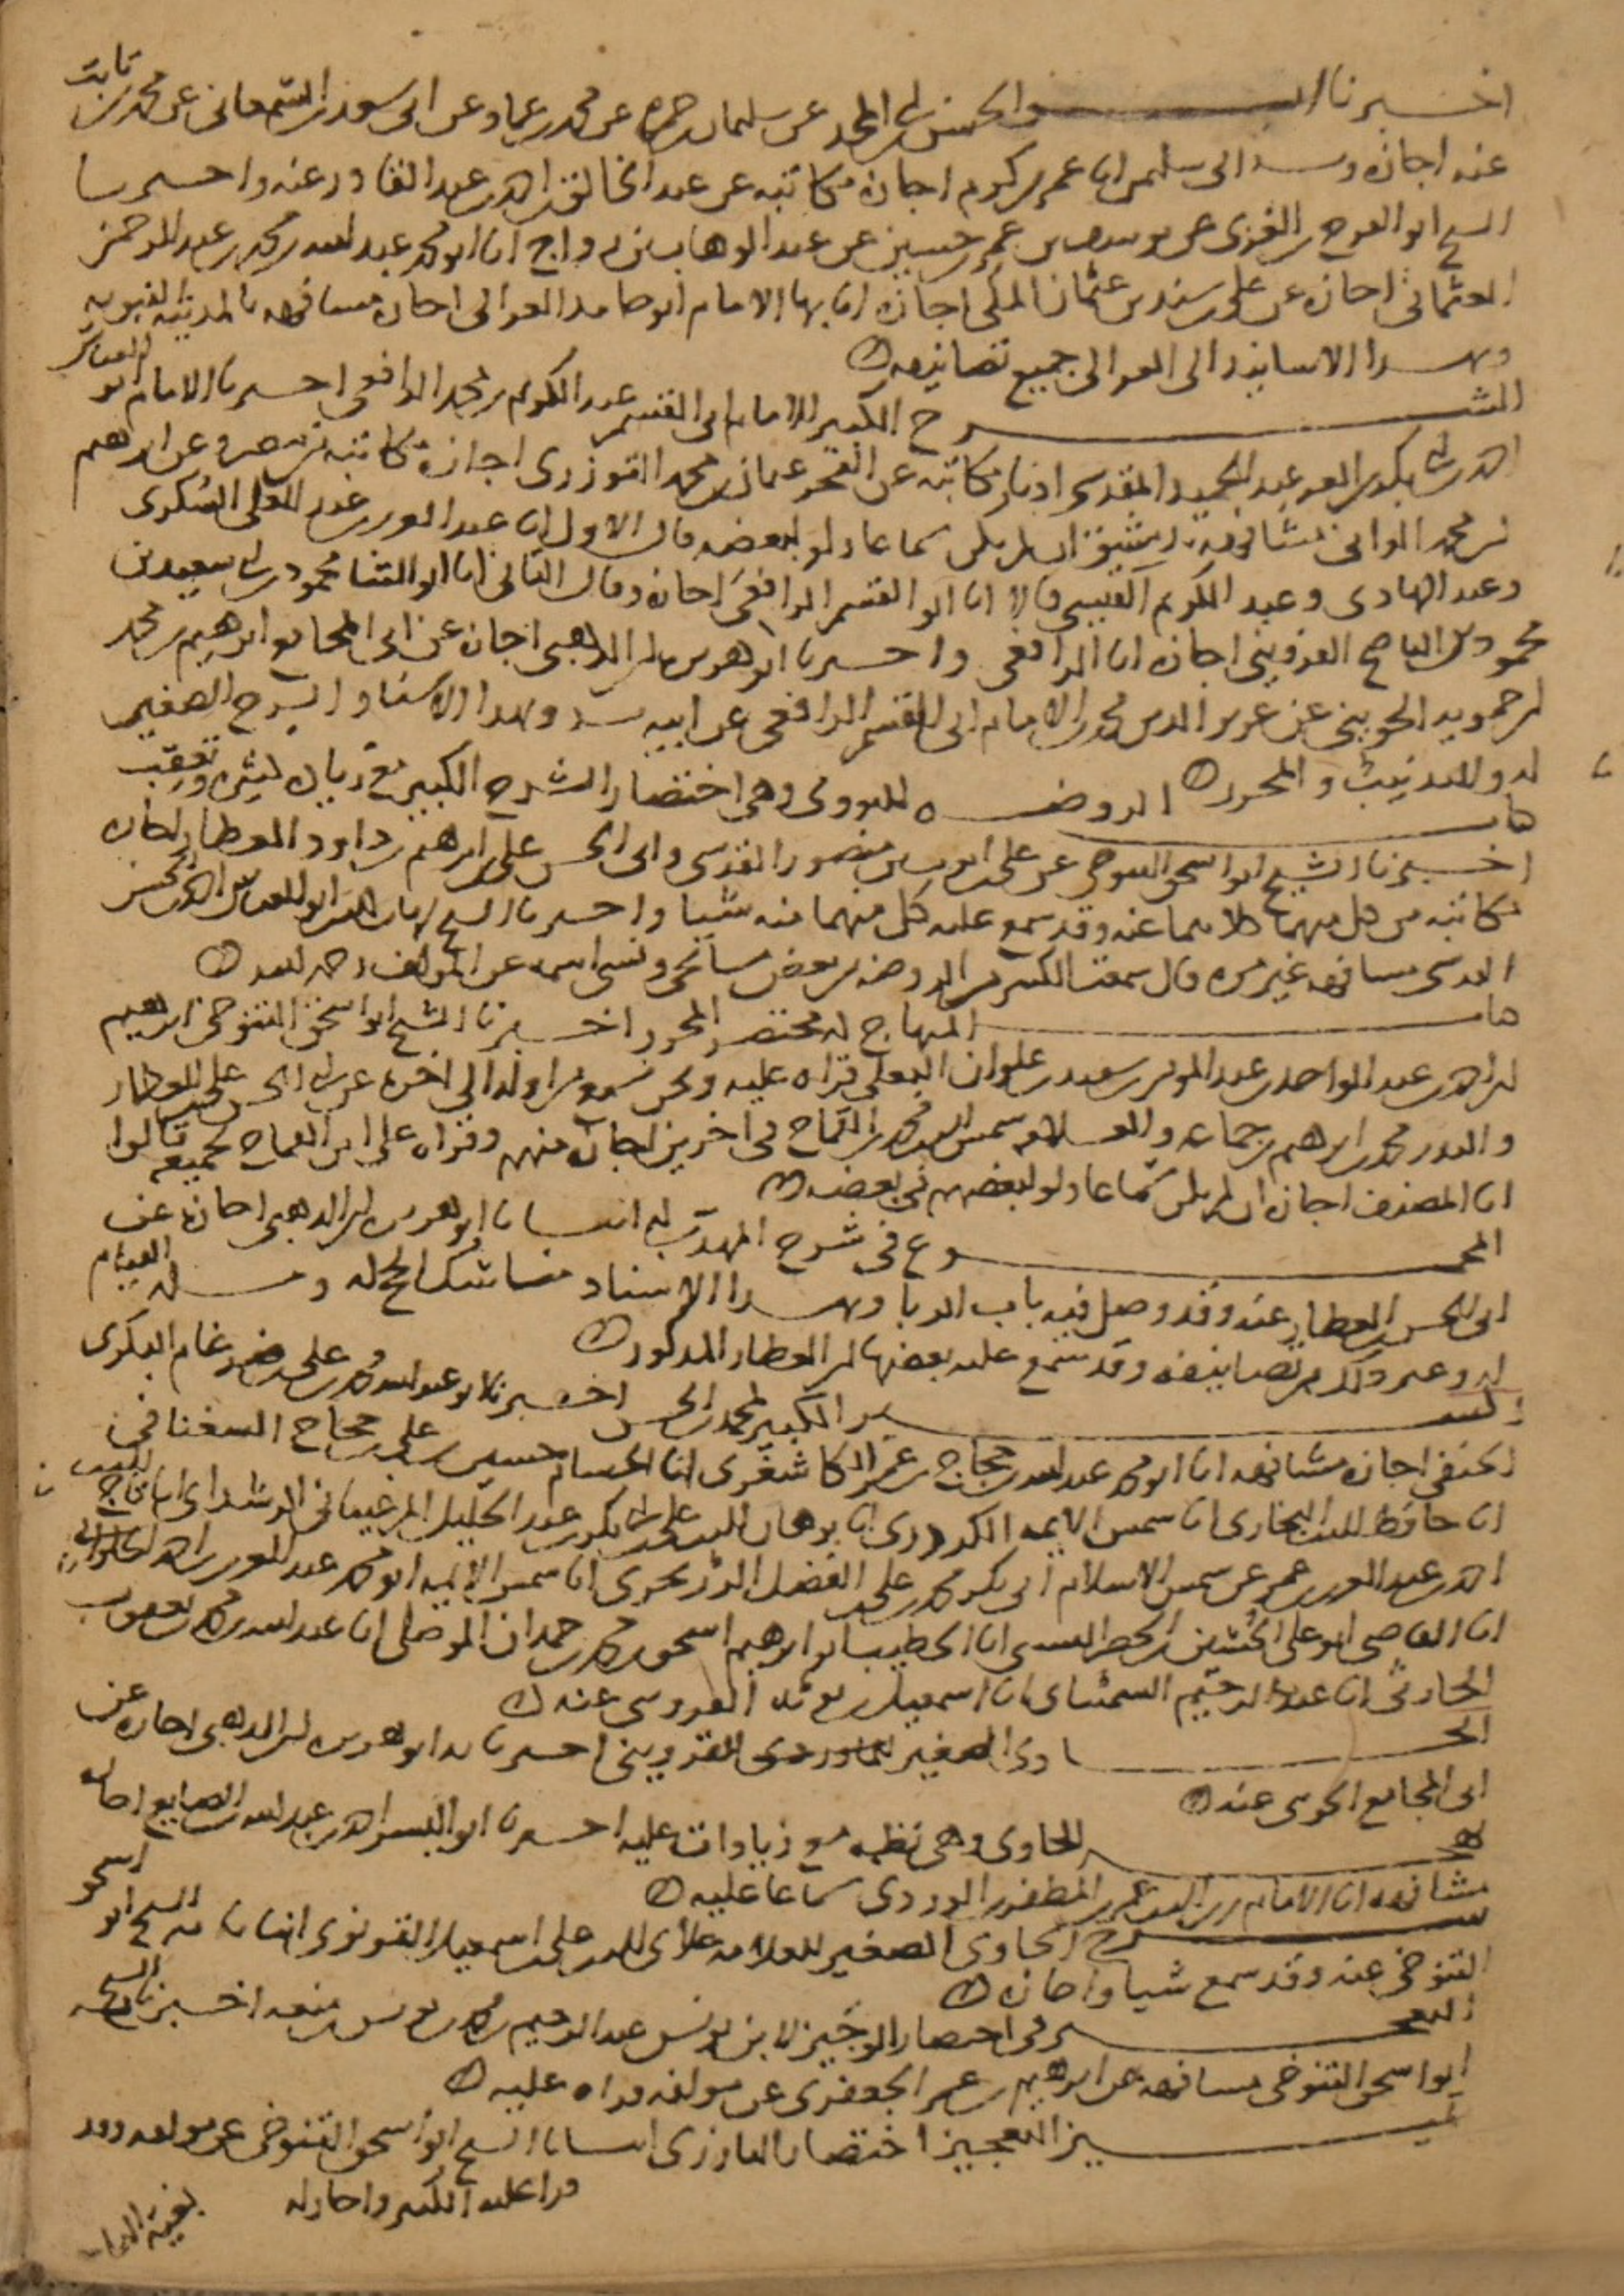 اخبرنا ابو الحسن بن ابي المجد عن سليمان بن حمزة عن محمد بن عماد عن ابي سعد بن السمعاني عن محمد بن ثابت
عنه اجازة الى سليمن انا عمر بن كرم اجازة مكاتبة عن عبد الخالق بن احمد بن عبد القادر عنه واخبرنا
الشيخ ابو الفرج بن الغزي عن يوسف بن عمر بن حسين عن عبد الوهاب بن رواج انا ابو محمد عبد الله بن محمد بن عبد الرحمن
العثماني اجازة عن علي بن سند بن عثمان المكي اجازة انا بها الامام ابو حامد الغزالي اجازة مشافهة بالمدينة النبوية
وبهذا الاسانيد الى الغزالي جميع تصانيفه
الشرح الكبير للامام ابي القسم عبد الكريم بن محمد الرافعي اخبرنا الامام ابو العباس
احمد بن ابي بكر بن العز عبد الحميد المقدسي اذنا مكاتبة عن الفخر عثمان بن محمد التوزري اجازة مكاتبة من مصر وعن ابرهيم
بن محمد الواني مشافهة بدمشق ان لم يكن سماعا ولو لبعضه قال الاول انا عبد العزيز بن عبد السكري
وعبد الهادي وعبد الكريم القيسي قالا انا ابو القسم الرافعي اجازة وقال الثاني انا ابو الثنا محمود بن ابي سعيد بن
محمود القزويني اجازة انا الرافعي واخبرنا ابو هريرة بن الذهبي اجازة عن ابي المجامع ابرهيم بن محمد
بن حمويه الجويني عن عزيز الدين محمد بن الامام ابي القسم الرافعي عن ابيه وبهذا الاسناد الشرح الصغير
له والتذنيب والمحرر الروضة للنووي وهي اختصار الشرح الكبير مع زيادات كثيرة وتعقب
اخبرنا الشيخ ابو اسحق التنوخي عن علي بن ايوب بن منصور المقدسي وابي الحسن علي بن ابرهيم بن داود العطار اجازة
مكاتبة من كل منهما كلاهما عنه وقد سمع عليه كل منهما منه شيا واخبرنا الشيخ ابو العباس احمد بن الحسن
مشافهة غير مرة قال سمعت الكثير من الروضة من بعض مشايخي ونسي اسمه عن المولف رحمه الله
المنهاج له مختصر المحرر اخبرنا الشيخ ابو اسحق التنوخي ابرهيم
بن احمد بن عبد الواحد بن عبد المومن بن سعيد بن علوان البعلي قراة عليه ونحن نسمع من اوله الى اخره عن ابي الحسن علي العطار
والبدر محمد بن ابرهيم بن جماعة والعلامة شمس الدين محمد بن القماح في اخرين اجازة منهم وقراة على ابن القماح لجميعه قالوا
انا المصنف اجازة ان لم يكن سماعا ولو لبعضهم في بعضه
المجموع في شرح المهذب له انبانا ابو هريرة بن الذهبي اجازة عن
ابي الحسن العطار عنه وقد وصل فيه باب الربا وبهذا الاسناد مناسك الحج له القيام
له وغير ذلك من تصانيفه وقد سمع عليه بعضها ابن العطار المذكور
السير الكبير لمحمد بن الحسن اخبرنا ابو عبد الله محمد بن علي بن ضرغام البكري
الحنفي اجازة مشافهة انا ابو محمد عبد الله بن حجاج بن عمر الكاشغري انا الحسام حسين بن علي بن حجاج السغناقي
انا حافظ الدين البخاري انا شمس الايمة الكردري انا برهان الدين علي بن ابي بكر بن عبد الجليل المرغيناني الرشداني انا تاج الدين
احمد بن عبد العزيز بن عمر عن شمس الاسلام ابي بكر محمد بن علي بن الفضل الزرنجري انا شمس الايمة ابو محمد عبد العزيز بن احمد الحلواني
انا القاضي ابو علي الحسين بن الخضر النسفي انا الخطيب ابو ابرهيم اسحق بن محمد بن حمدان الموصلي انا عبد الله بن محمد بن يعقوب
الحارثي انا عبد الرحيم السمناني انا اسمعيل بن توبة القزويني عنه
الحاوي الصغير للقزويني اخبرنا به ابو هريرة بن الذهبي اجازة عن
ابي المجامع عنه
الحاوي وهي نظمه مع زيادات عليه اخبرنا ابو اليسر احمد بن عبد الله بن الصايغ اجازة
مشافهة انا الامام زين الدين عمر بن المظفر الوردي سماعا عليه
شرح الحاوي الصغير للعلامة علاي الدين علي بن اسمعيل القونوي انبانا به الشيخ ابو اسحق
التنوخي عنه وقد سمع شيا واجازة
التعجيز في اختصار الوجيز لابن يونس عبد الرحيم بن محمد بن يونس بن منعة اخبرنا به الشيخ
ابو اسحق التنوخي مشافهة عن ابرهيم بن عمر الجعبري عن مولفه قراة عليه
تمييز التعجيز اختصار البارزي انبانا الشيخ ابو اسحق التنوخي عن مولفه وقد
قرا عليه الكثير واجاز له